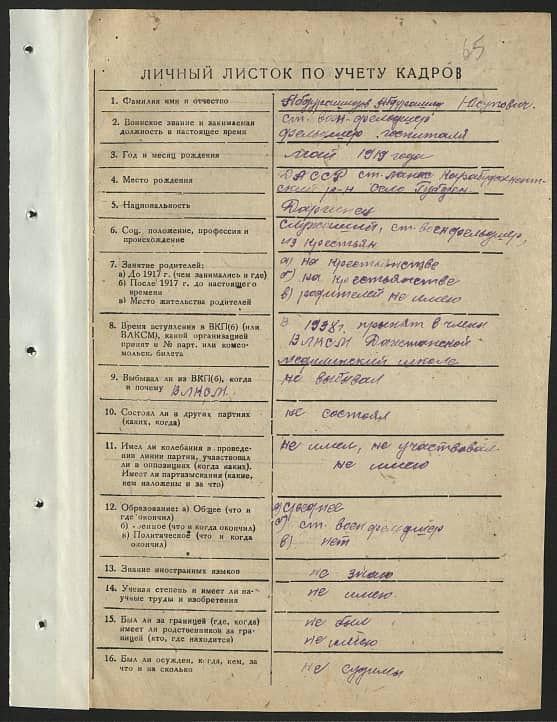 65
ЛИЧНЫЙ ЛИСТОК ПО УЧЕТУ КАДРОВ
1. Фамилия имя и отчество
2. Воинское звание и занимаемая
должность в настоящее время
ст. воен-фельдшер
фельдшер госпиталя
3. Год и месяц рождения
май 1919 года
4. Место рождения
ДАССР
р-н село Губден
5. Национальность
Даргинец
6. Соц. положение, профессия и
происхождение
служащий, ст. военфельдшер,
из крестьян
7. Занятие родителей:
а) До 1917 г. (чем занимались и где)
б) После 1917 г. до настоящего
времени
в) Место жительства родителей
а) на крестьянстве
б) на крестьянстве
в) родителей не имею
8. Время вступления в ВКП(б) (или
ВЛКСМ), какой организацией
принят и № парт. или комсо-
мольск. билета
В 1938 г. принят в члены
ВЛКСМ Дагстанской
медицинский школе
9. Выбывал ли из ВКП(б), когда
и почему ВЛКСМ
не выбывал
10. Состоял ли в других партиях
(каких, когда)
не состоял
11. Имел ли колебания в проведе-
нии линии партии, участвовал
ли в оппозициях (когда каких).
Имеет ли партвзыскания (какие,
кем наложены и за что)
не имел, не участвовал
не имею
12. Образование: а) Общее (что и
где окончил)
б) Военное (что и когда окончил)
в) Политическое (что и когда
окончил)
а) среднее
б) ст. военфельдшер
в) нет
13. Знание иностранных языков
не знаю
14. Ученая степень и имеет ли на-
учные труды и изобретения
не имею
15. Был ли за границей (где, когда)
имеет ли родственников за гра-
ницей (кто, где находится)
не был
не имею
16. Был ли осужден, когда, кем, за
что и на сколько
не судимы